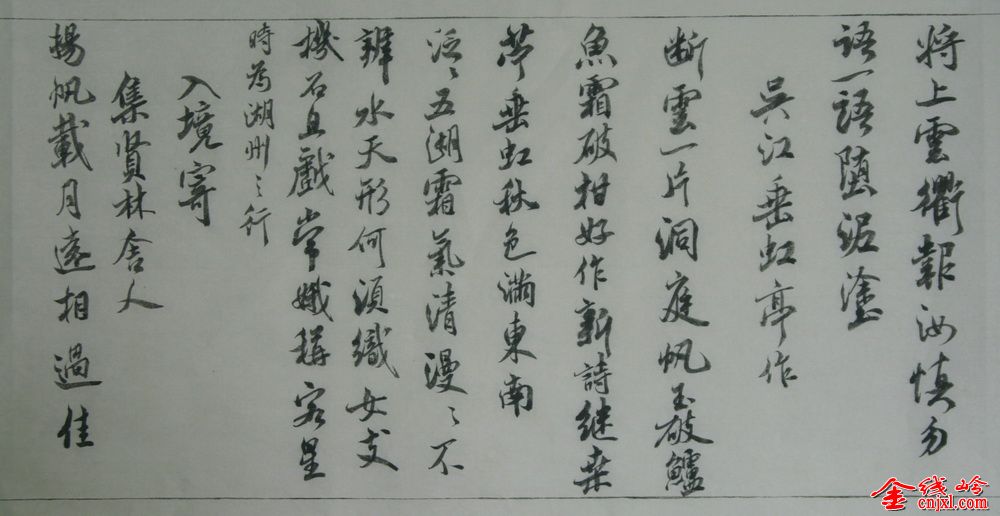 将上雲衢報汝慎勿
語一語墮泥塗
吳江垂虹亭作
断雲一片洞庭帆玉破鱸
魚霜破柑好作新詩継桒
苧垂虹秋色滿東南
泛〻五湖霜氣清漫〻不
辨水天形何須織女支
機石且戲常娥稱客星
時為湖州之行
入境寄
集賢林舍人
揚帆載月遠相過佳
金线岭
cnjxl.com